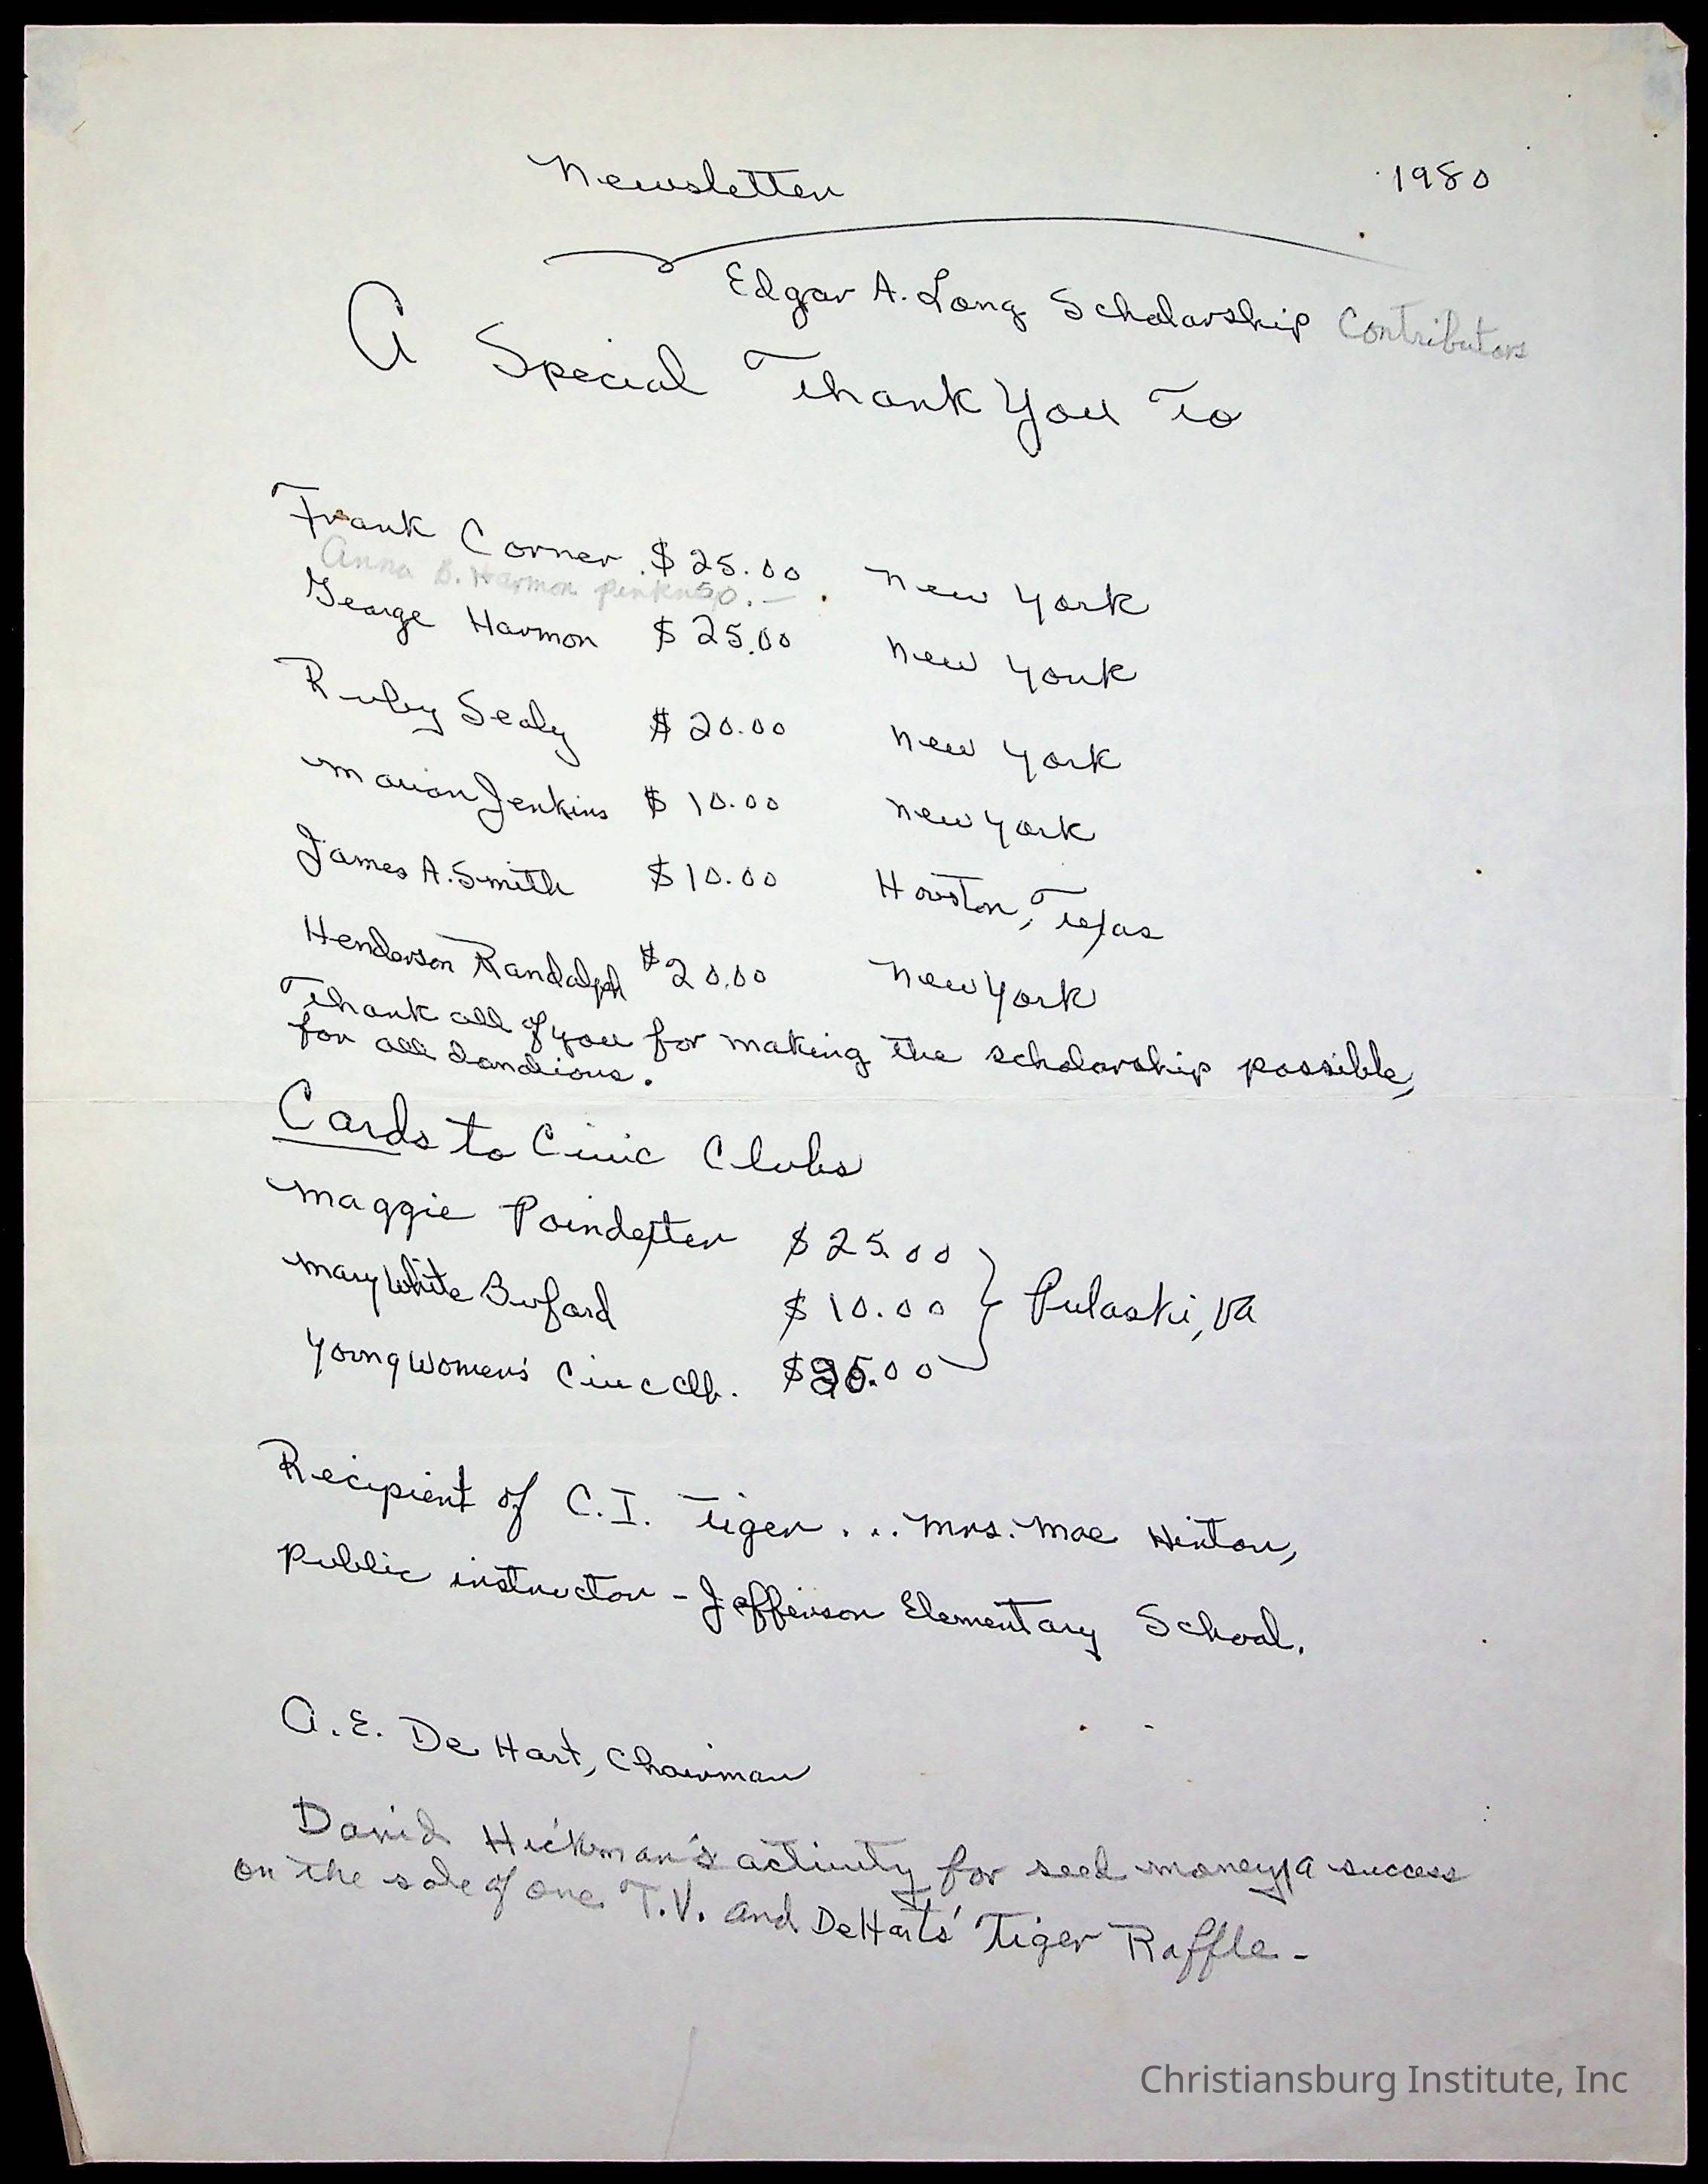 Newsletter 1980
Edgar A. Long Scholarship Contributors
A Special Thank You To
Frank Corner $25.00 New York
Anna B. Harmon 50.—
George Harmon $25.00 New York
Ruby Sealy $20.00 New York
Marion Jenkins $10.00 New York
James A. Smith $10.00 Houston, Texas
Henderson Randalph $20.00 New York
Thank all of you for making the scholarship possible,
for all
Cards to Civic Clubs
Maggie Poindexter $25.00
Mary White Buford $10.00 } Pulaski, Va
Young Women's Civic Clb.
Recipient of C.I. Tiger ... Mrs. Mae Hinton,
Public instructor - Jefferson Elementary School.
A.E. De Hart, Chairman
David Hickman's activity for seed money, a success
on the sale of one T.V. and DeHarts' Tiger Raffle -
Christiansburg Institute, Inc